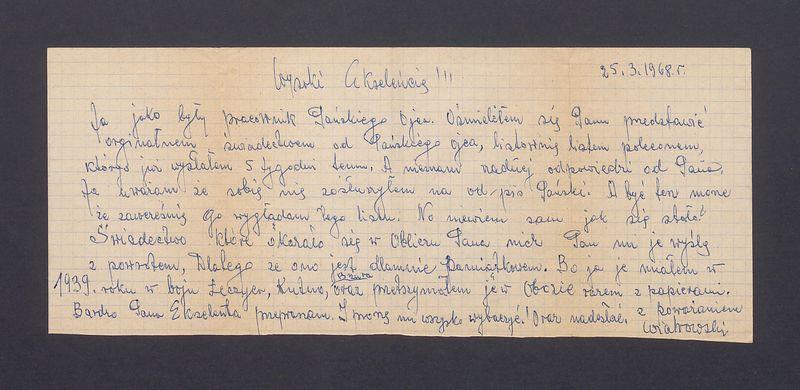 25.3.1968.r.
Wysoki Ekselencie!!!
Ja jako były pracownik Pańskiego Ojca. Ośmieliłem się Panu predstawić
orginalnem świadectwem od Pańskiego ojca, listownię listem poleconem,
którego już wysłałem 5 tygodni temu. A niemam nadzieji odpowiedzi od Pana.
Ja uważam że sobię nię zósłużyłem na od-pis Pański. A być ten może
że zawcześnię go wyglądam Tego listu. No niewiem sam jak się stało!
Świadectwo które okazało się w Obliczu Pana niech Pan mi je wyśly
z powrotem, Dlatego że ono jest dlamnie Pamiątkowem. Bo ja je miałem w
Bzura
1939. roku w boju Łęczyca, Kutno, oraz przetszymałem je w Obozie razem z papierami.
Bardzo Pana Ekselenta preprarzam. I proszę mi wszysko wybaczyć! Oraz nadesłać. z poważaniem
Wiatrowski